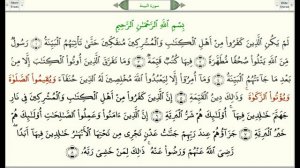 سورة البينة
بِسْمِ ٱللَّهِ ٱلرَّحْمَٰنِ ٱلرَّحِيمِ
لَمْ يَكُنِ ٱلَّذِينَ كَفَرُوا۟ مِنْ أَهْلِ ٱلْكِتَٰبِ وَٱلْمُشْرِكِينَ مُنفَكِّينَ حَتَّىٰ تَأْتِيَهُمُ ٱلْبَيِّنَةُ ١ رَسُولٌ
مِّنَ ٱللَّهِ يَتْلُوا۟ صُحُفًا مُّطَهَّرَةً ٢ فِيهَا كُتُبٌ قَيِّمَةٌ ٣ وَمَا تَفَرَّقَ ٱلَّذِينَ أُوتُوا۟ ٱلْكِتَٰبَ إِلَّا مِنۢ
بَعْدِ مَا جَآءَتْهُمُ ٱلْبَيِّنَةُ ٤ وَمَآ أُمِرُوٓا۟ إِلَّا لِيَعْبُدُوا۟ ٱللَّهَ مُخْلِصِينَ لَهُ ٱلدِّينَ حُنَفَآءَ وَيُقِيمُوا۟ ٱلصَّلَوٰةَ
وَيُؤْتُوا۟ ٱلزَّكَوٰةَ وَذَٰلِكَ دِينُ ٱلْقَيِّمَةِ ٥ إِنَّ ٱلَّذِينَ كَفَرُوا۟ مِنْ أَهْلِ ٱلْكِتَٰبِ وَٱلْمُشْرِكِينَ فِى نَارِ
جَهَنَّمَ خَٰلِدِينَ فِيهَآ أُو۟لَٰٓئِكَ هُمْ شَرُّ ٱلْبَرِيَّةِ ٦ إِنَّ ٱلَّذِينَ ءَامَنُوا۟ وَعَمِلُوا۟ ٱلصَّٰلِحَٰتِ أُو۟لَٰٓئِكَ هُمْ
خَيْرُ ٱلْبَرِيَّةِ ٧ جَزَآؤُهُمْ عِندَ رَبِّهِمْ جَنَّٰتُ عَدْنٍ تَجْرِى مِن تَحْتِهَا ٱلْأَنْهَٰرُ خَٰلِدِينَ فِيهَآ أَبَدًا
رَّضِىَ ٱللَّهُ عَنْهُمْ وَرَضُوا۟ عَنْهُ ذَٰلِكَ لِمَنْ خَشِىَ رَبَّهُۥ ٨